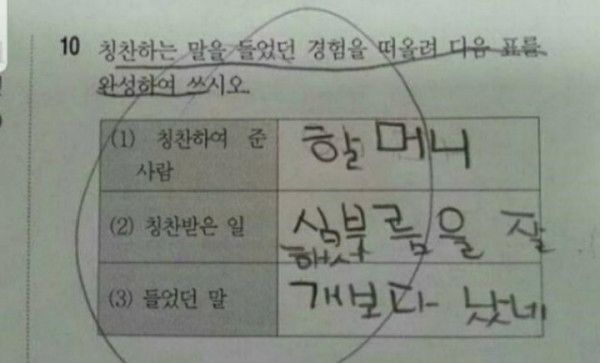 10 칭찬하는 말을 들었던 경험을 떠올려 다음 표를
완성하여 쓰시오.
(1) 칭찬하여 준
사람
할머니
(2) 칭찬받은 일
심부름을 잘
했
(3) 들었던 말
개보다 낫네